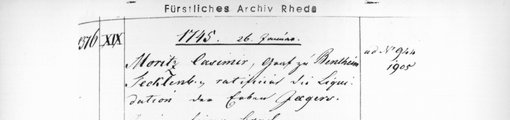 Fürstliches Archiv Rheda
1576 XIX 1745. 26. Januar. ad No 944
Moritz Casimir, Graf zu Bentheim 1905
Tecklenb., ratificirt die Liqui-
dation der Erben Jaegers.